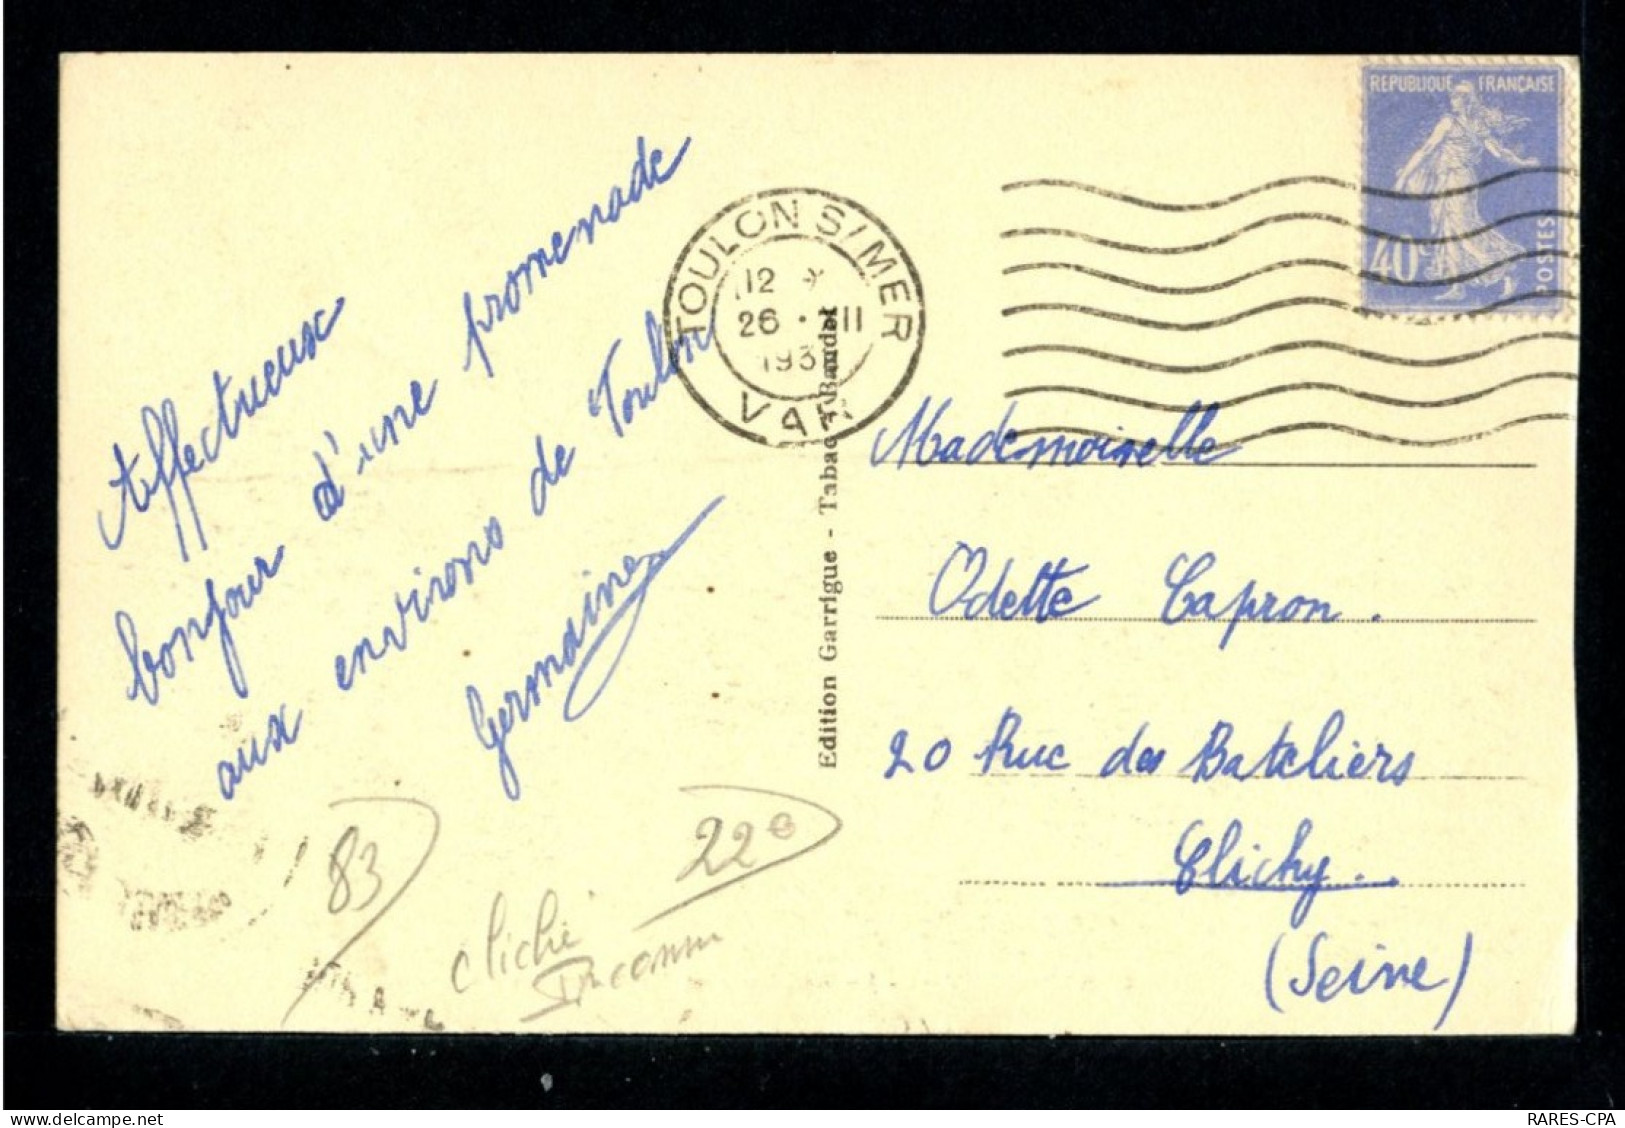 REPUBLIQUE FRANÇAISE
40c
POSTES
TOULON S/MER
12 *
26 · VII
193
VAR
Affectueux
bonjour d'une promenade
aux environs de Toulon
Germaine
Edition Garrigue - Tabac - Baudet
Mademoiselle
Odette Capron.
20 Rue des Bateliers
Clichy..
(Seine)
83
22e
cliché
Inconnu
RARES-CPA